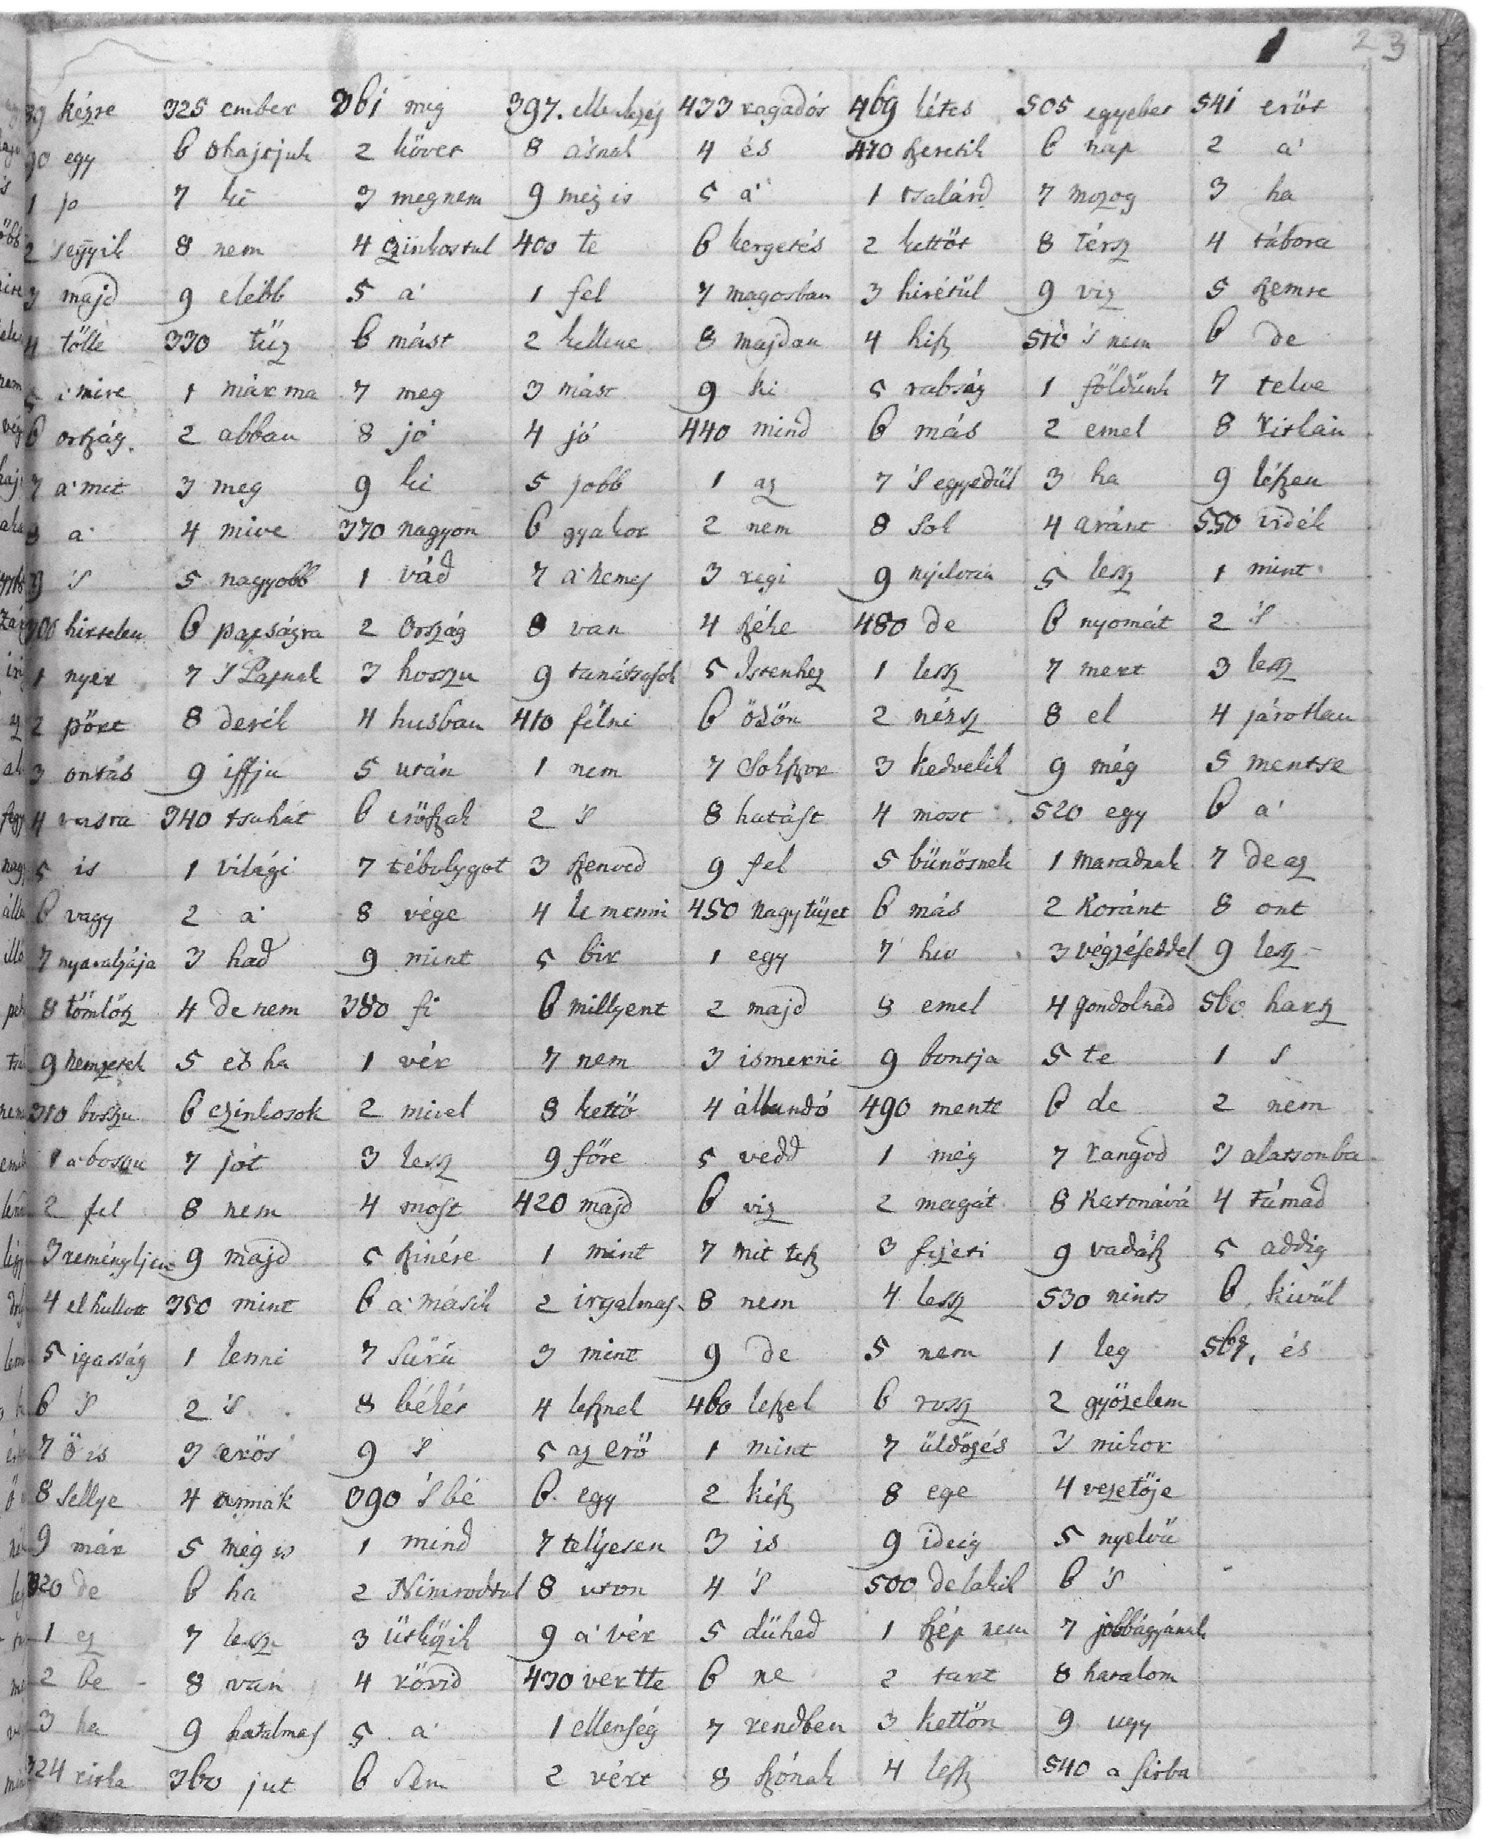 23
89 kézre 325 ember 361 mig 397. ellenkezés 433 ragadós 469 létes 505 egyebet 541 erőt
90 egy 6 ohajtjuk 2 követ 8 ásnak 4 és 470 keretik 6 nap 2 a'
1 jo 7 ki 3 megnem 9 még is 5 a' 1 tsalárd 7 mozog 3 ha
2 's egyik 8 nem 4 czinkostul 400 te 6 kergetés 2 kettőt 8 térsz 4 tábora
3 majd 9 elébb 5 a' 1 fel 7 magosban 3 hirétül 9 viz 5 szemre
4 tőlle 330 tűz 6 mást 2 kellene 8 majdan 4 kisz 510 's nem 6 de
5 a' mire 1 már ma 7 meg 3 mást 9 ki 5 rabság 1 földünk 7 telve
6 ország. 2 abban 8 jó 4 jó 440 mind 6 más 2 emel 8 ritkán
7 a' mit 3 meg 9 ki 5 jobb 1 az 7 's egyedül 3 ha 9 lészen
8 a' 4 mive 370 nagyon 6 gyakor 2 nem 8 Sok 4 aránt 550 vidék
9 's 5 nagyobb 1 vád 7 a' nemes 3 regi 9 5 lesz 1 mint
300 hirtelen 6 papságra 2 Ország 8 van 4 széke 480 de 6 nyomát 2 's
1 nyer 7 's Papnak 3 hosszu 9 tanátsosok 5 Istenhez 1 lesz 7 mert 3 lesz
2 pört 8 derék 4 husban 410 félni 6 özön 2 nézsz 8 el 4 járatlan
3 ontás 9 iffju 5 után 1 nem 7 Sokszor 3 kedvelik 9 még 5 mentse
4 vasra 340 tsuhát 6 erőszak 2 's 8 hatást 4 most 520 egy 6 a'
5 is 1 világi 7 tébolygot 3 szenved 9 fel 5 bünösnek 1 maradnak 7 de az
6 vagy 2 a' 8 vége 4 le menni 450 nagy tüzet 6 más 2 Koránt 8 ont
7 nyavalyája 3 had 9 mint 5 bir 1 egy 7 hív 3 végzéseddel 9 lesz
8 tömlötz 4 de nem 380 fi 6 millyent 2 majd 8 emel 4 gondolnád 560 harcz
9 nemzetek 5 és ha 1 vér 7 nem 3 ismerni 9 bontja 5 te 1 s
310 boszu 6 czinkosok 2 mivel 8 kettő 4 állandó 490 mentt 6 de 2 nem
1 a' boszu 7 jót 3 lesz 9 főre 5 vedd 1 még 7 rangod 3 alatsonba
2 fel 8 nem 4 most 420 majd 6 viz 2 magát 8 Katonává 4 támad
3 reményljen 9 majd 5 szinére 1 mint 7 mit tesz 3 fizeti 9 vadász 5 addig
4 el hullott 350 mint 6 a' másik 2 irgalmas 8 nem 4 lesz 530 nints 6 kivül
5 igasság 1 lenni 7 Sürü 3 mint 9 de 5 nem 1 leg 567. és
6 's 2 's 8 békés 4 lesznek 460 leszel 6 rosz 2 győzelem
7 ő is 3 erős 9 's 5 az erő 1 mint 7 üldözés 3 mikor
8 Sellye 4 annak 390 's bé 6 egy 2 kész 8 ege 4 vezetője
9 már 5 még is 1 mind 7 teljesen 3 is 9 ideig 5 nyelvü
320 de 6 ha 2 Nimrodtul 8 uton 4 's 500 de lakik 6 's
1 ez 7 lesz 3 ütközik 9 a' vér 5 dühed 1 szép nem 7 jobbágyának
2 be 8 van 4 rövid 430 vertte 6 ne 2 tart 8 hatalom
3 ha 9 hatalmas 5 a' 1 ellenség 7 rendben 3 kettőn 9 ugy
324 ritka 360 jut 6 Sem 2 vért 8 szónak 4 lesz 540 a sirba